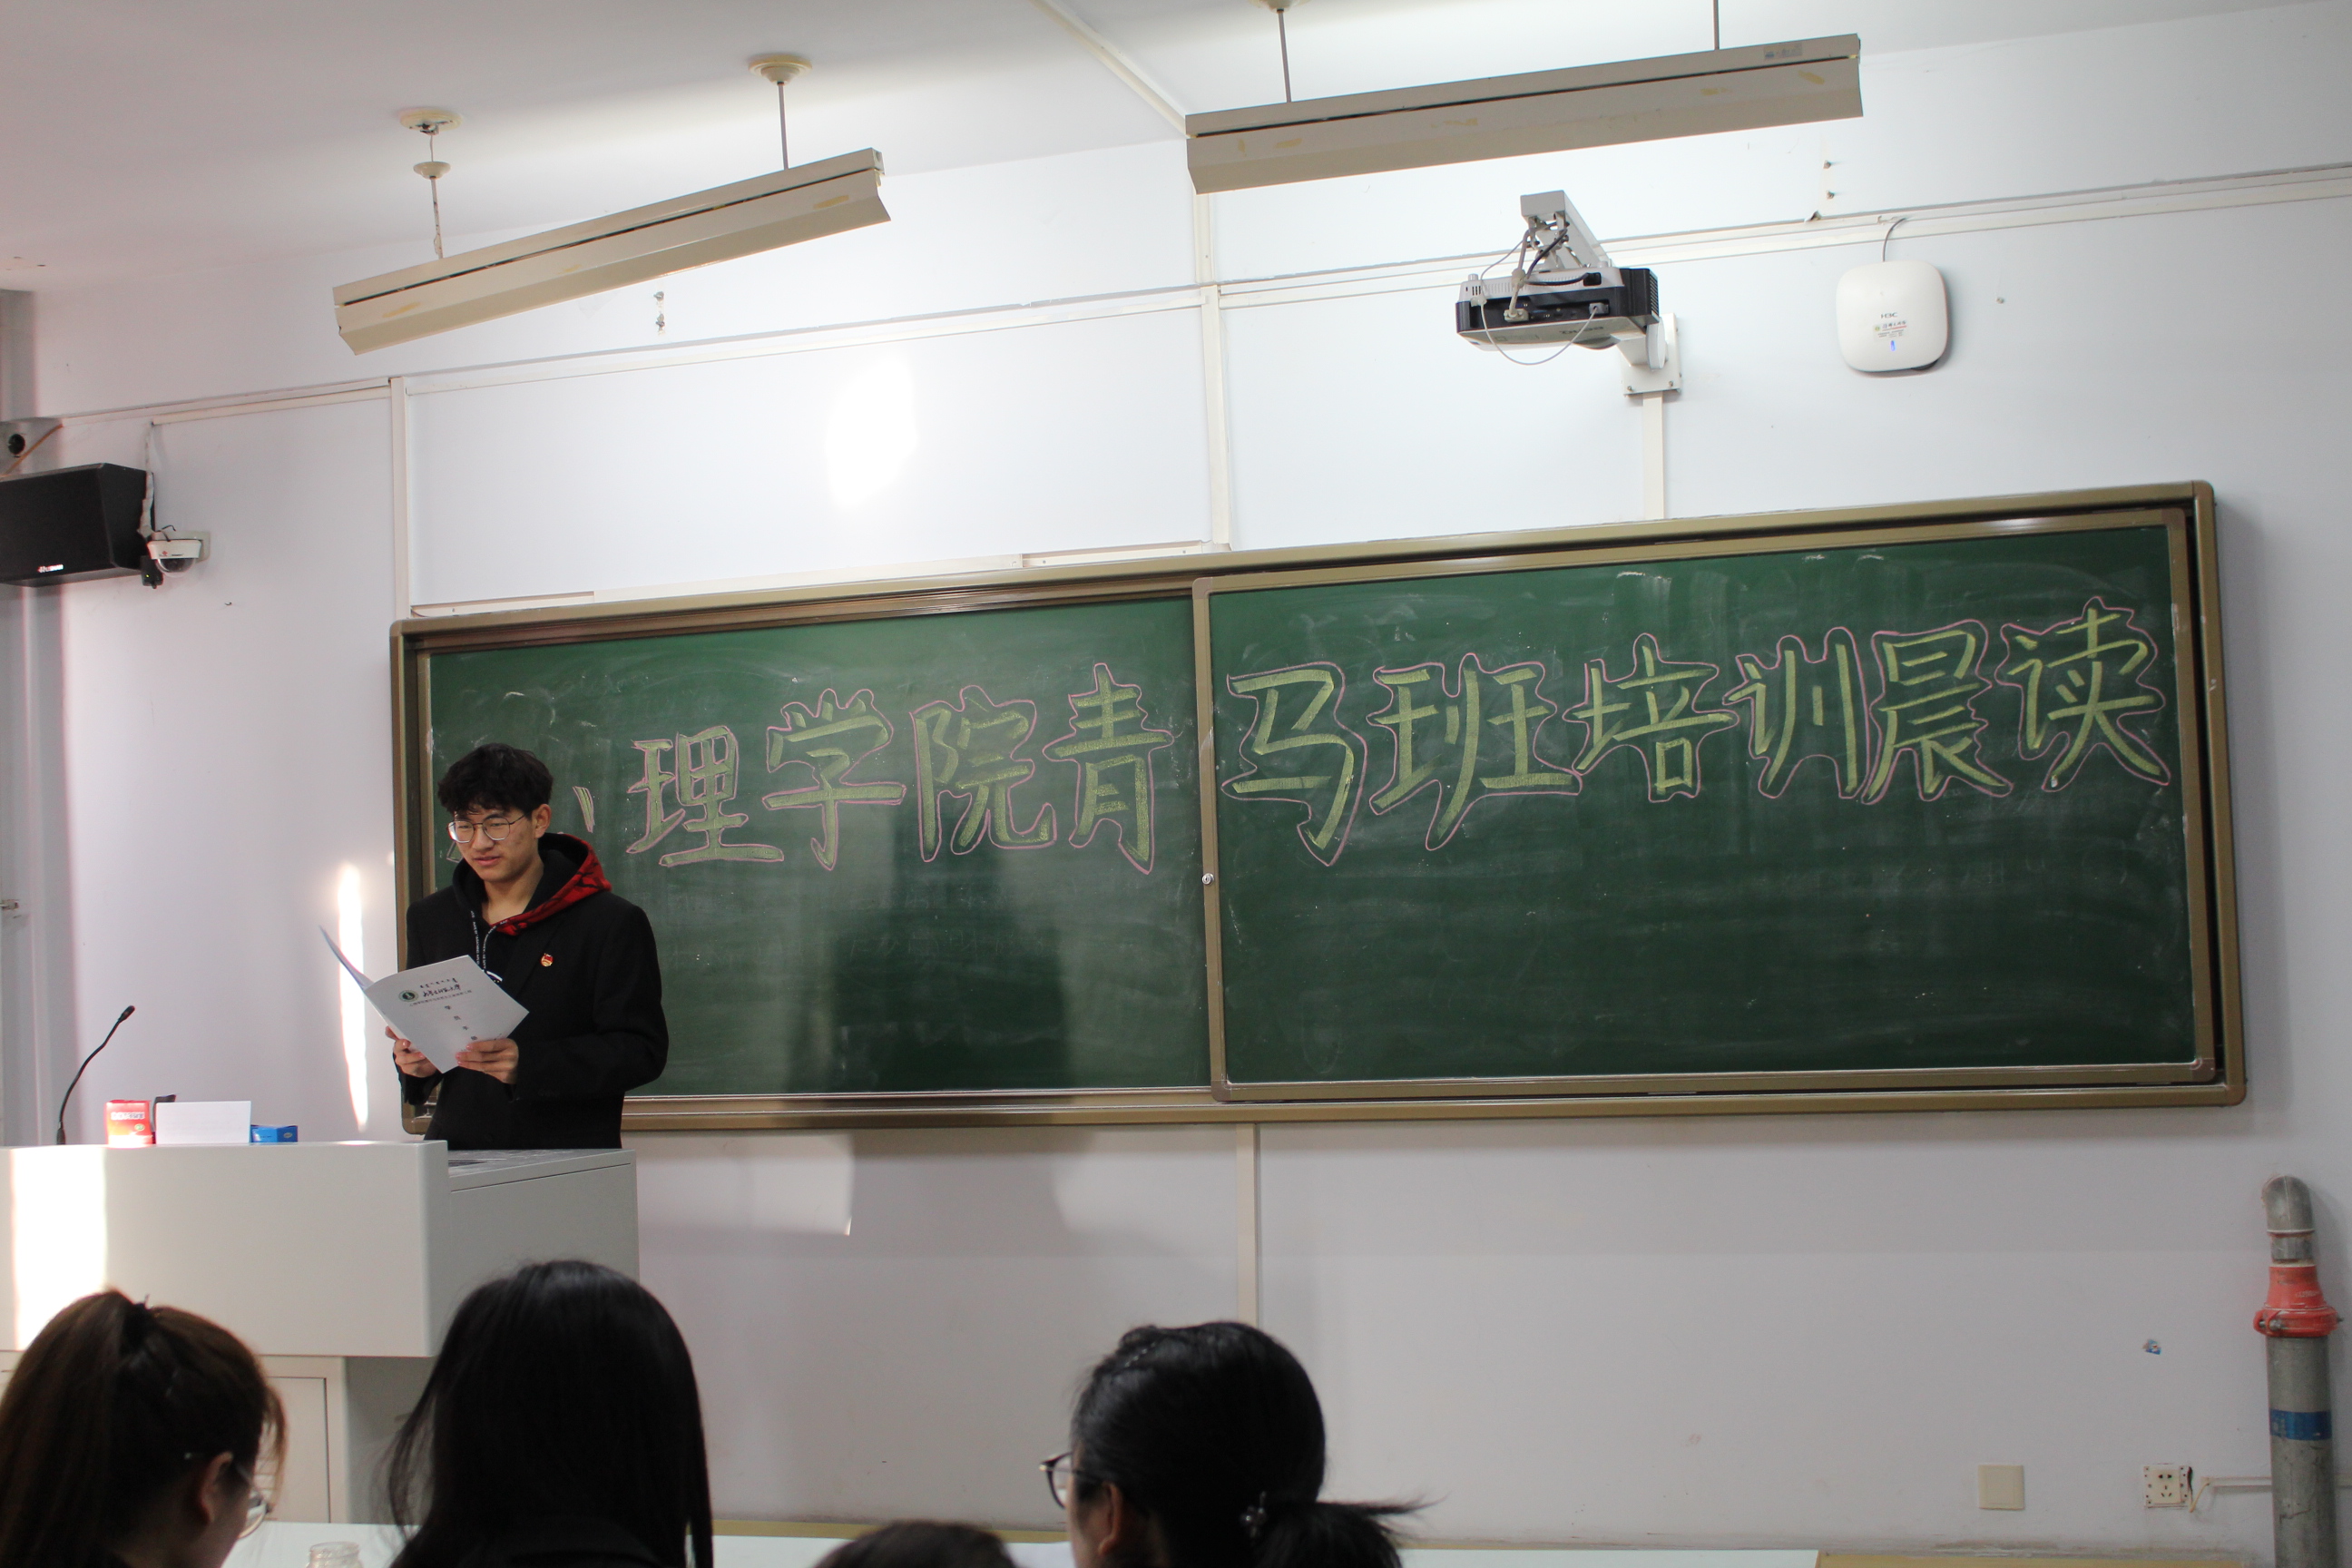 理学院青马班培训晨读
H3C